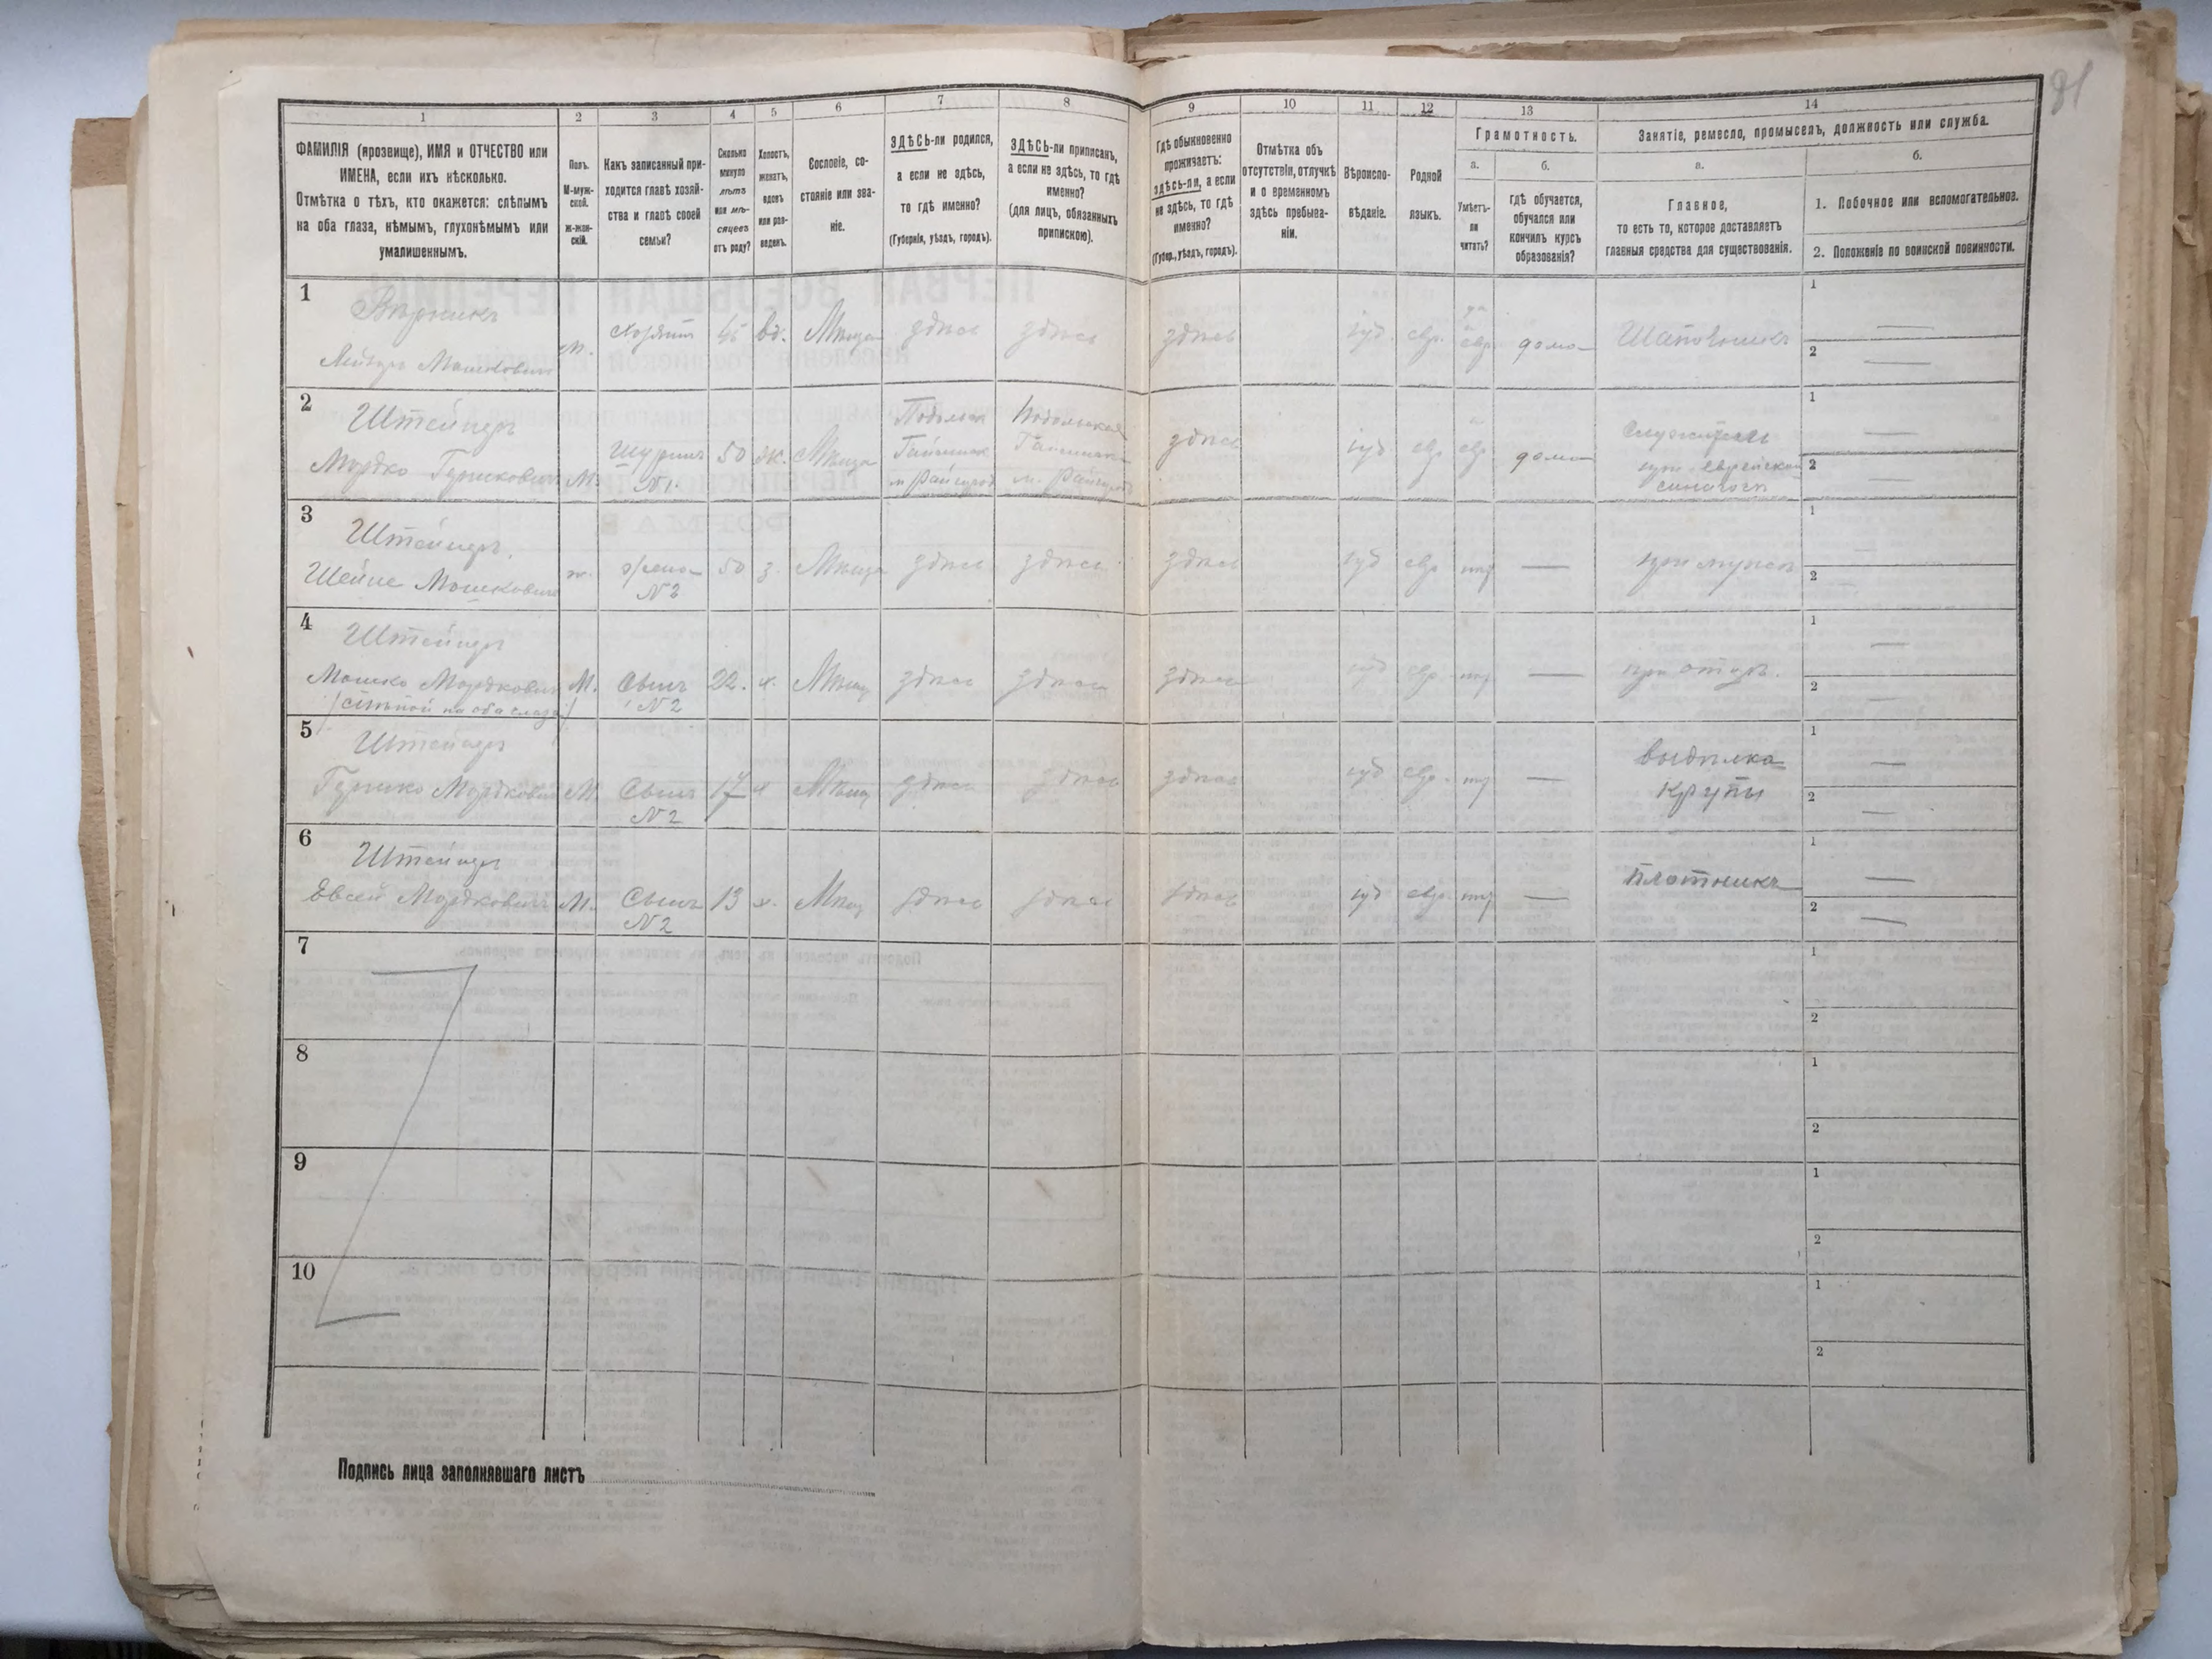 81
1
2
3
4
5
6
7
8
9
10
11
12
13
14
ФАМИЛІЯ (прозвище), ИМЯ и ОТЧЕСТВО или
ИМЕНА, если ихъ нѣсколько.
Отмѣтка о тѣхъ, кто окажется: слѣпымъ
на оба глаза, нѣмымъ, глухонѣмымъ или
умалишеннымъ.
Полъ.
М-муж-
ской.
Ж-жен-
скій.
Какъ записанный при-
ходится главѣ хозяй-
ства и главѣ своей
семьи?
Сколько
минуло
лѣтъ
или мѣ-
сяцевъ
отъ роду?
Холостъ,
женатъ,
вдовъ
или раз-
веденъ.
Сословіе, со-
стояніе или зва-
ніе.
ЗДѢСЬ-ли родился,
а если не здѣсь,
то гдѣ именно?
(Губернія, уѣздъ, городъ).
ЗДѢСЬ-ли приписанъ,
а если не здѣсь, то гдѣ
именно?
(для лицъ, обязанныхъ
припискою).
Гдѣ обыкновенно
проживаетъ:
здѣсь-ли, а если
не здѣсь, то гдѣ
именно?
(Губер., уѣздъ, городъ).
Отмѣтка объ
отсутствіи, отлучкѣ
и о временномъ
здѣсь пребыва-
ніи.
Вѣроиспо-
вѣданіе.
Родной
языкъ.
Грамотность.
а.
Умѣетъ-
ли
читать?
б.
гдѣ обучается,
обучался или
кончилъ курсъ
образованія?
Занятіе, ремесло, промыселъ, должность или служба.
а.
Главное,
то есть то, которое доставляетъ
главныя средства для существованія.
б.
1. Побочное или вспомогательное.
2. Положеніе по воинской повинности.
1
Лейзеръ Мошковичъ
м.
Хозяинъ
вд.
Мѣща
здѣсь
здѣсь
здѣсь
іуд.
евр.
дома
1
2
2
Штейнеръ
Мордко Гершковичъ
М.
Шуринъ
N 1.
50
ж.
Мѣща
Подольск
Гайсинск
м. Райгород
Подольская
Гайсинск
м. Райгород
здѣсь
іуд
евр
евр
дома
Служитель
при еврейской
синагогѣ
1
2
3
Штейнеръ.
Шейне Мошковичъ
ж.
жена
N 2
50
з.
Мѣща
здѣсь
здѣсь
здѣсь
іуд
евр
нѣт
—
при мужѣ
1
2
4
Штейнеръ
Мошко Мордковичъ
(слѣпой на оба глаза)
М.
Сынъ
N 2
22.
х.
Мѣщ
здѣсь
здѣсь
здѣсь
іуд
евр
нѣт
—
при отцѣ.
1
2
5
Штейнеръ
Гершко Мордковичъ
М.
Сынъ
N 2
17
х
Мѣщ
здѣсь
здѣсь
здѣсь
іуд
евр.
нѣт
—
выдѣлка
крупы
1
2
6
Штейнеръ
Евсей Мордковичъ
М.
Сынъ
N 2
13
х.
Мѣщ
здѣсь
здѣсь
здѣсь
іуд
евр.
нѣт
—
плотникъ
1
2
7
1
2
8
1
2
9
1
2
10
1
2
Подпись лица заполнявшаго листъ